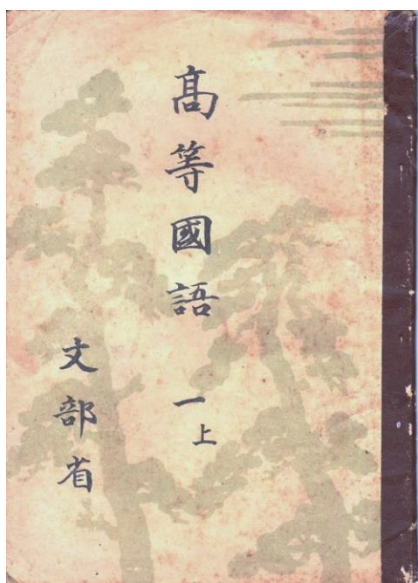 高等國語 一上
文部省